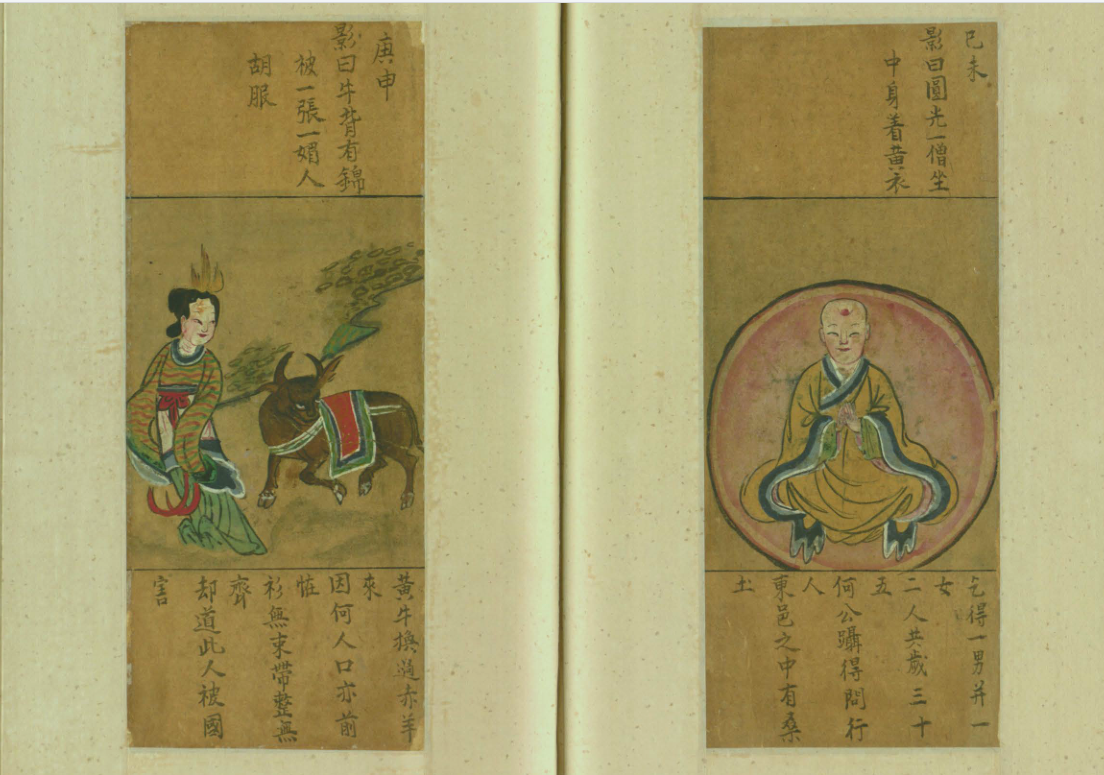 己未
影曰圓光一僧坐
中身着黄衣
乞得一男并一
女
二人共歲三十
五
何公躡得問行
人
東邑之中有桑
土
庚申
影曰牛背有錦
被一張一媚人
胡眠
黄牛換過赤羊
來
因何人口亦前
恠
衫無束帶整無
齊
却道此人被國
害